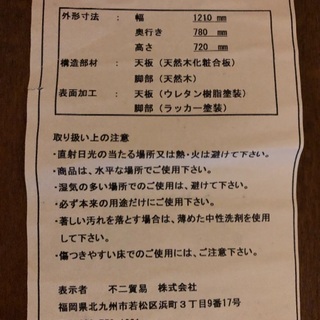 外形寸法 : 幅 1210 mm
奥行き 780 mm
高さ 720 mm
構造部材 : 天板(天然木化粧合板)
脚部(天然木)
表面加工 : 天板(ウレタン樹脂塗装)
脚部(ラッカー塗装)
取り扱い上の注意
・直射日光の当たる場所又は熱・火は避けて下さい。
・商品は、水平な場所でご使用下さい。
・湿気の多い場所でのご使用は、避けて下さい。
・必ず本来の用途だけにご使用下さい。
・著しい汚れを落とす場合は、薄めた中性洗剤を使用
して下さい。
・傷つきやすい床でのご使用には、ご注意下さい。
表示者 不二貿易 株式会社
福岡県北九州市若松区浜町3丁目9番17号